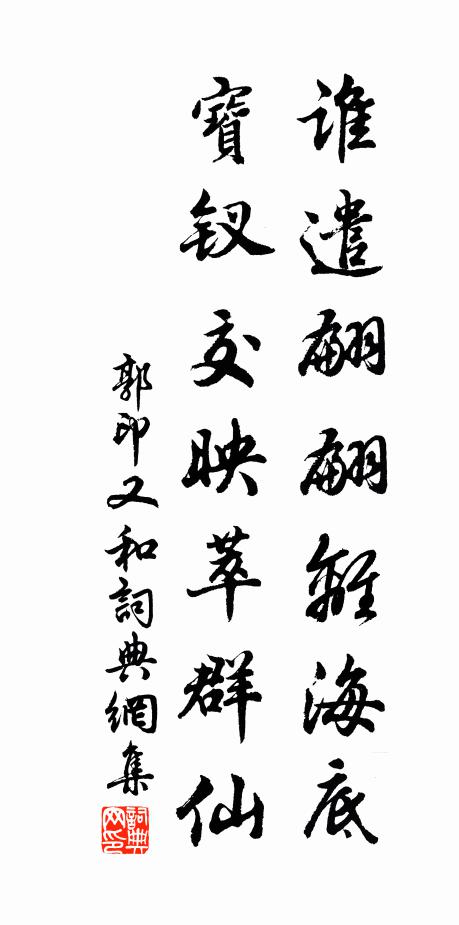 谁遣翩翩離海底
寶釵交映萃群仙
郭印又和詞典網集
詞典网印